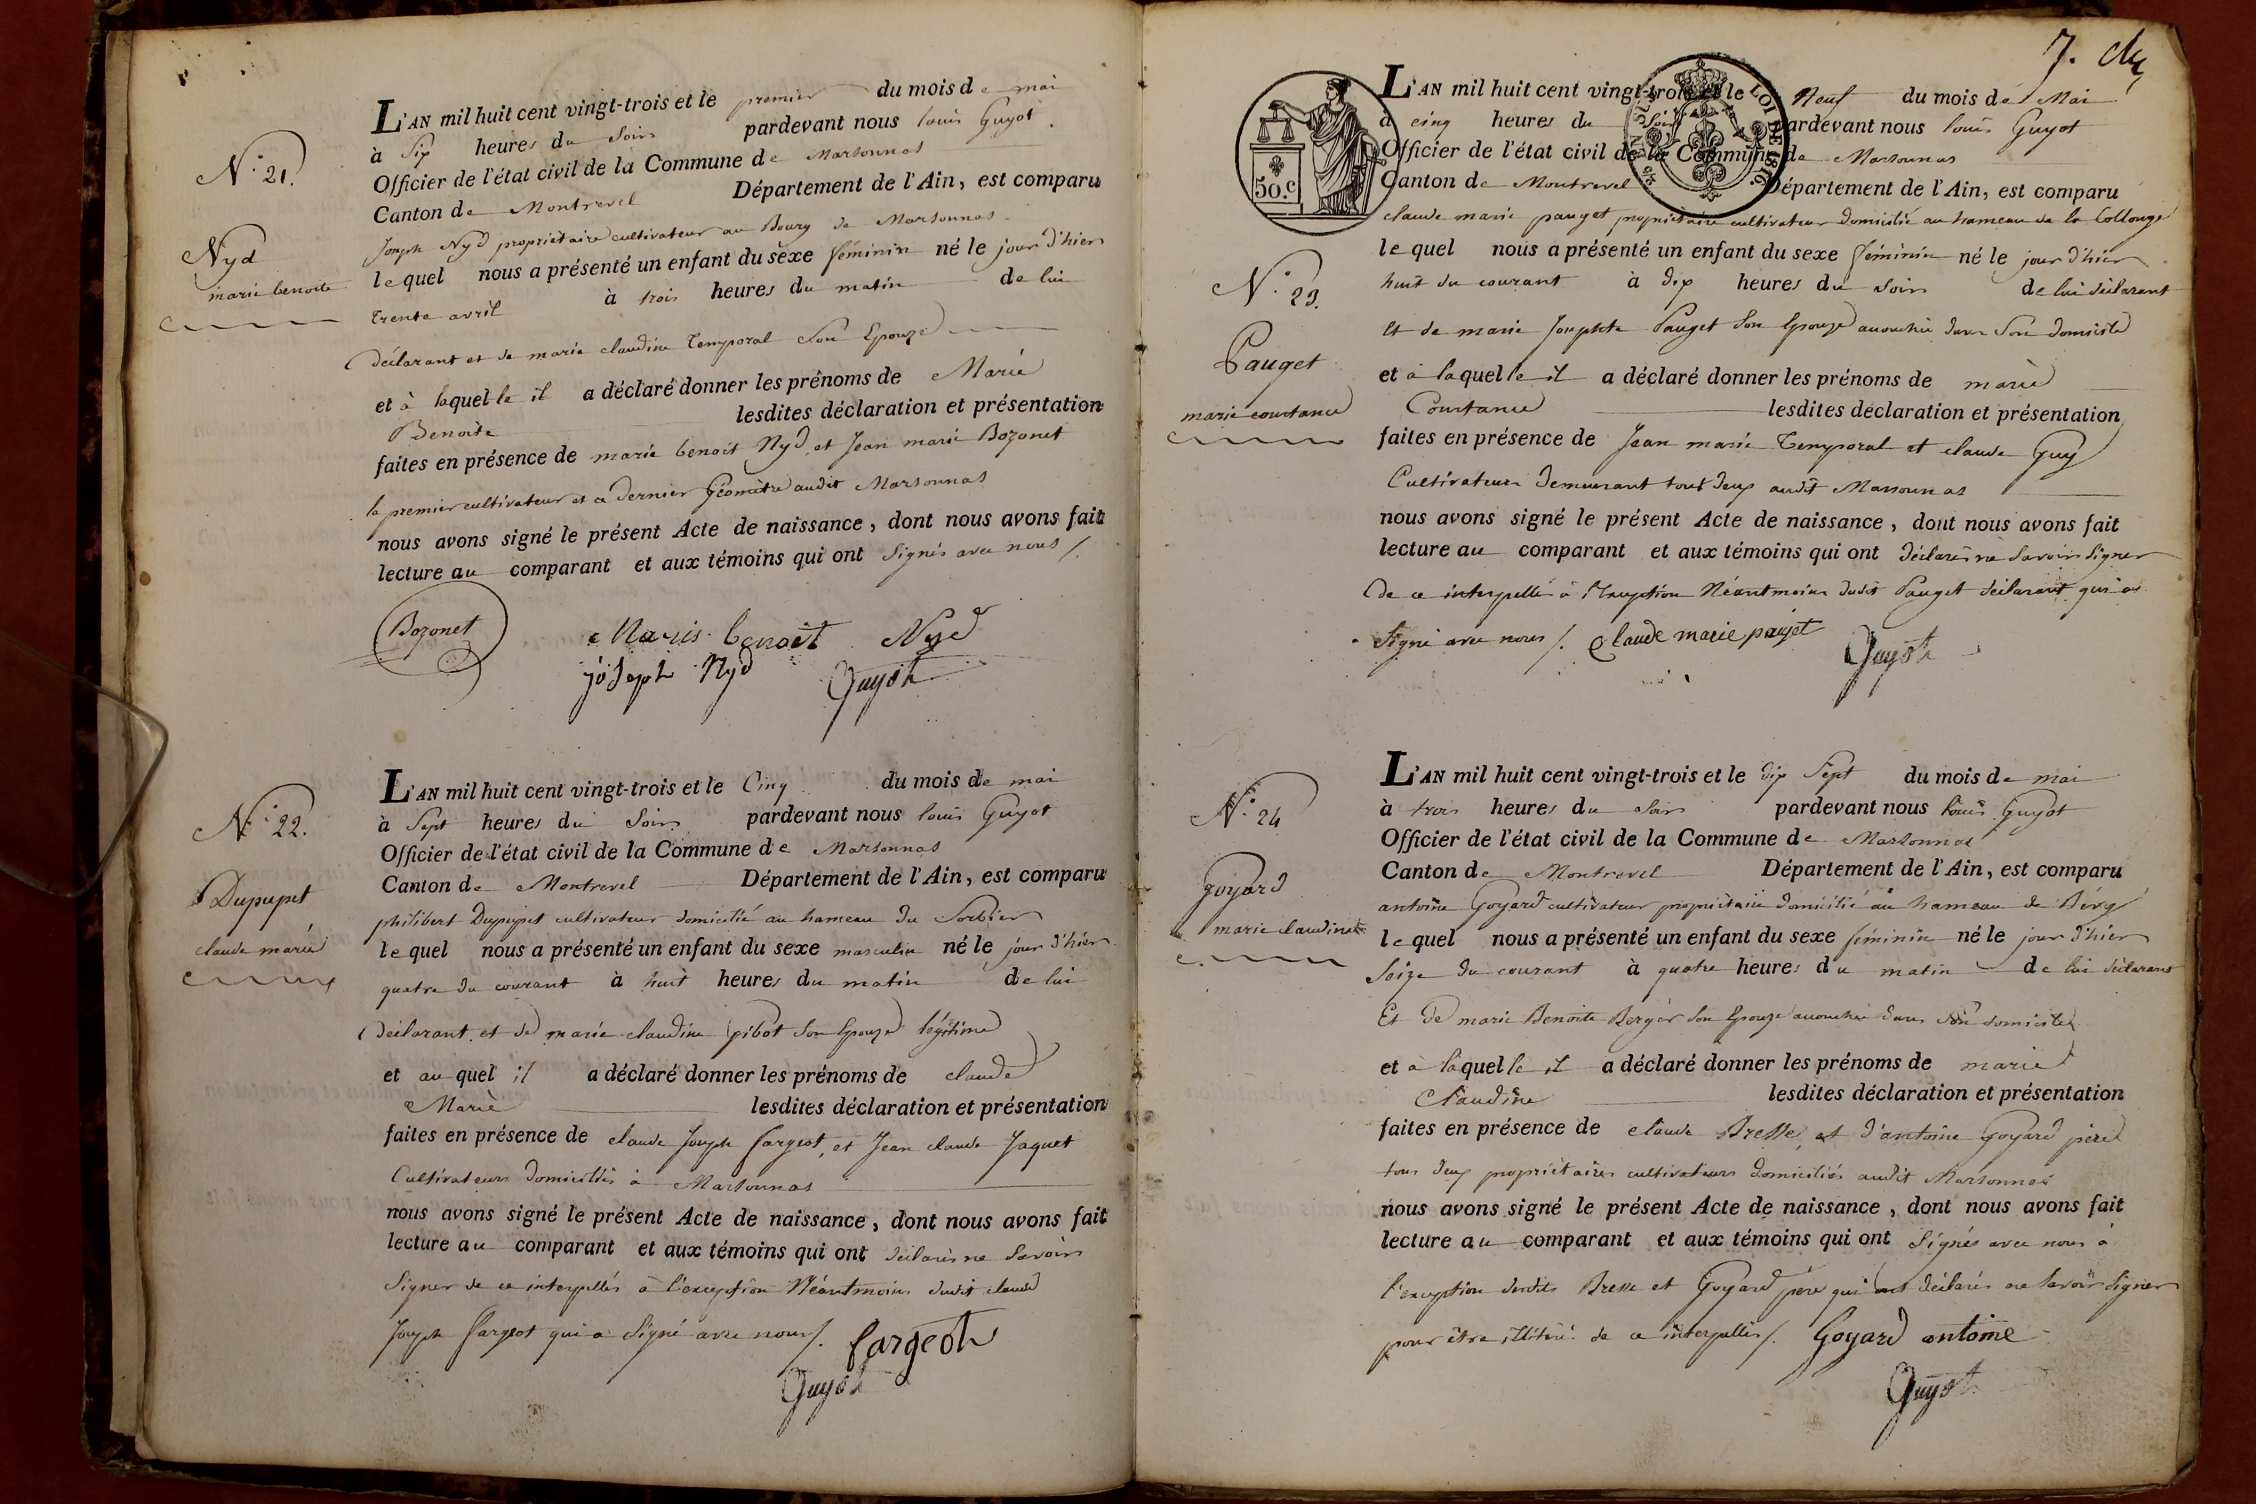 N.° 21.
Nyd
marie benoite
L'AN mil huit cent vingt-trois et le premier du mois de mai
à Six heures du Soir pardevant nous louis Guyot
Officier de l'état civil de la Commune de Marsonnas
Canton de Montrevel Département de l'Ain, est comparu
Joseph Nyd propriétaire cultivateur au Bourg de Marsonnas
le quel nous a présenté un enfant du sexe féminin né le jour d'hier
trente avril à trois heures du matin de lui
déclarant et de marie claudine Temporal Son Epouze
et à laquelle il a déclaré donner les prénoms de Marie
Benoite lesdites déclaration et présentation
faites en présence de marie benoit Nyd, et Jean marie Bozonet
le premier cultivateur et ce dernier Géomètre audit Marsonnas
nous avons signé le présent Acte de naissance, dont nous avons fait
lecture au comparant et aux témoins qui ont Signés avec nous /.
Bozonet Maris benoit Nyd
joseph Nyd Guyot
N.° 22.
Dupupet
claude marie
L'AN mil huit cent vingt-trois et le Cinq du mois de mai
à Sept heures du Soir pardevant nous louis Guyot
Officier de l'état civil de la Commune de Marsonnas
Canton de Montrevel Département de l'Ain, est comparu
philibert Dupupet cultivateur domicilié au hameau du Sorbier
le quel nous a présenté un enfant du sexe masculin né le jour d'hier
quatre du courant à huit heures du matin de lui
déclarant et de marie claudine pibot Son Epouze légitime
et au quel il a déclaré donner les prénoms de claude
Marie lesdites déclaration et présentation
faites en présence de claude Joseph fargeot, et Jean claude Jaquet
Cultivateurs domiciliés à Marsonnas
nous avons signé le présent Acte de naissance, dont nous avons fait
lecture au comparant et aux témoins qui ont déclarés ne Savoir
Signer de ce interpellés à l'exception Néantmoins dudit claude
Joseph fargeot qui a Signé avec nous /. fargeot
Guyot
7.
50.c
LOI DE 1816.
L'AN mil huit cent vingt-trois et le Neuf du mois de Mai
à cinq heures du Soir pardevant nous louis Guyot
Officier de l'état civil de la Commune de Marsonnas
Canton de Montrevel Département de l'Ain, est comparu
claude marie pauget propriétaire cultivateur domicilié au hameau de la Collonge
N.° 23.
Pauget
marie constance
le quel nous a présenté un enfant du sexe féminin né le jour d'hier
huit du courant à dix heures du soir de lui déclarant
et de marie Josephte Pauget Son Epouze accouchée dans Son domicile
et à laquelle il a déclaré donner les prénoms de marie
Constance lesdites déclaration et présentation
faites en présence de Jean marie Temporal et claude Guy
Cultivateurs demeurant tout deux audit Marsonnas
nous avons signé le présent Acte de naissance, dont nous avons fait
lecture au comparant et aux témoins qui ont déclarés ne Savoir Signer
de ce interpellés à l'exception Néantmoins dudit Pauget déclarant qui a
Signé avec nous /. Claude marie paujet Guyot
N.° 24
Goyard
marie claudine
L'AN mil huit cent vingt-trois et le dix Sept du mois de mai
à trois heures du soir pardevant nous louis Guyot
Officier de l'état civil de la Commune de Marsonnas
Canton de Montrevel Département de l'Ain, est comparu
antoine Goyard cultivateur propriétaire domicilié au hameau de Bévy
le quel nous a présenté un enfant du sexe féminin né le jour d'hier
Seize du courant à quatre heures du matin de lui déclarant
Et de marie Benoite Berger Son Epouze accouchée dans Son domicile
et à laquelle il a déclaré donner les prénoms de marie
Claudine lesdites déclaration et présentation
faites en présence de claude Bresse, et d'antoine Goyard père
tous deux propriétaires cultivateurs domiciliés audit Marsonnas
nous avons signé le présent Acte de naissance, dont nous avons fait
lecture au comparant et aux témoins qui ont Signés avec nous à
l'exception desdits Bresse et Goyard père qui ont déclarés ne Savoir Signer
pour être illitéré de ce interpellés /. Goyard antoine
Guyot